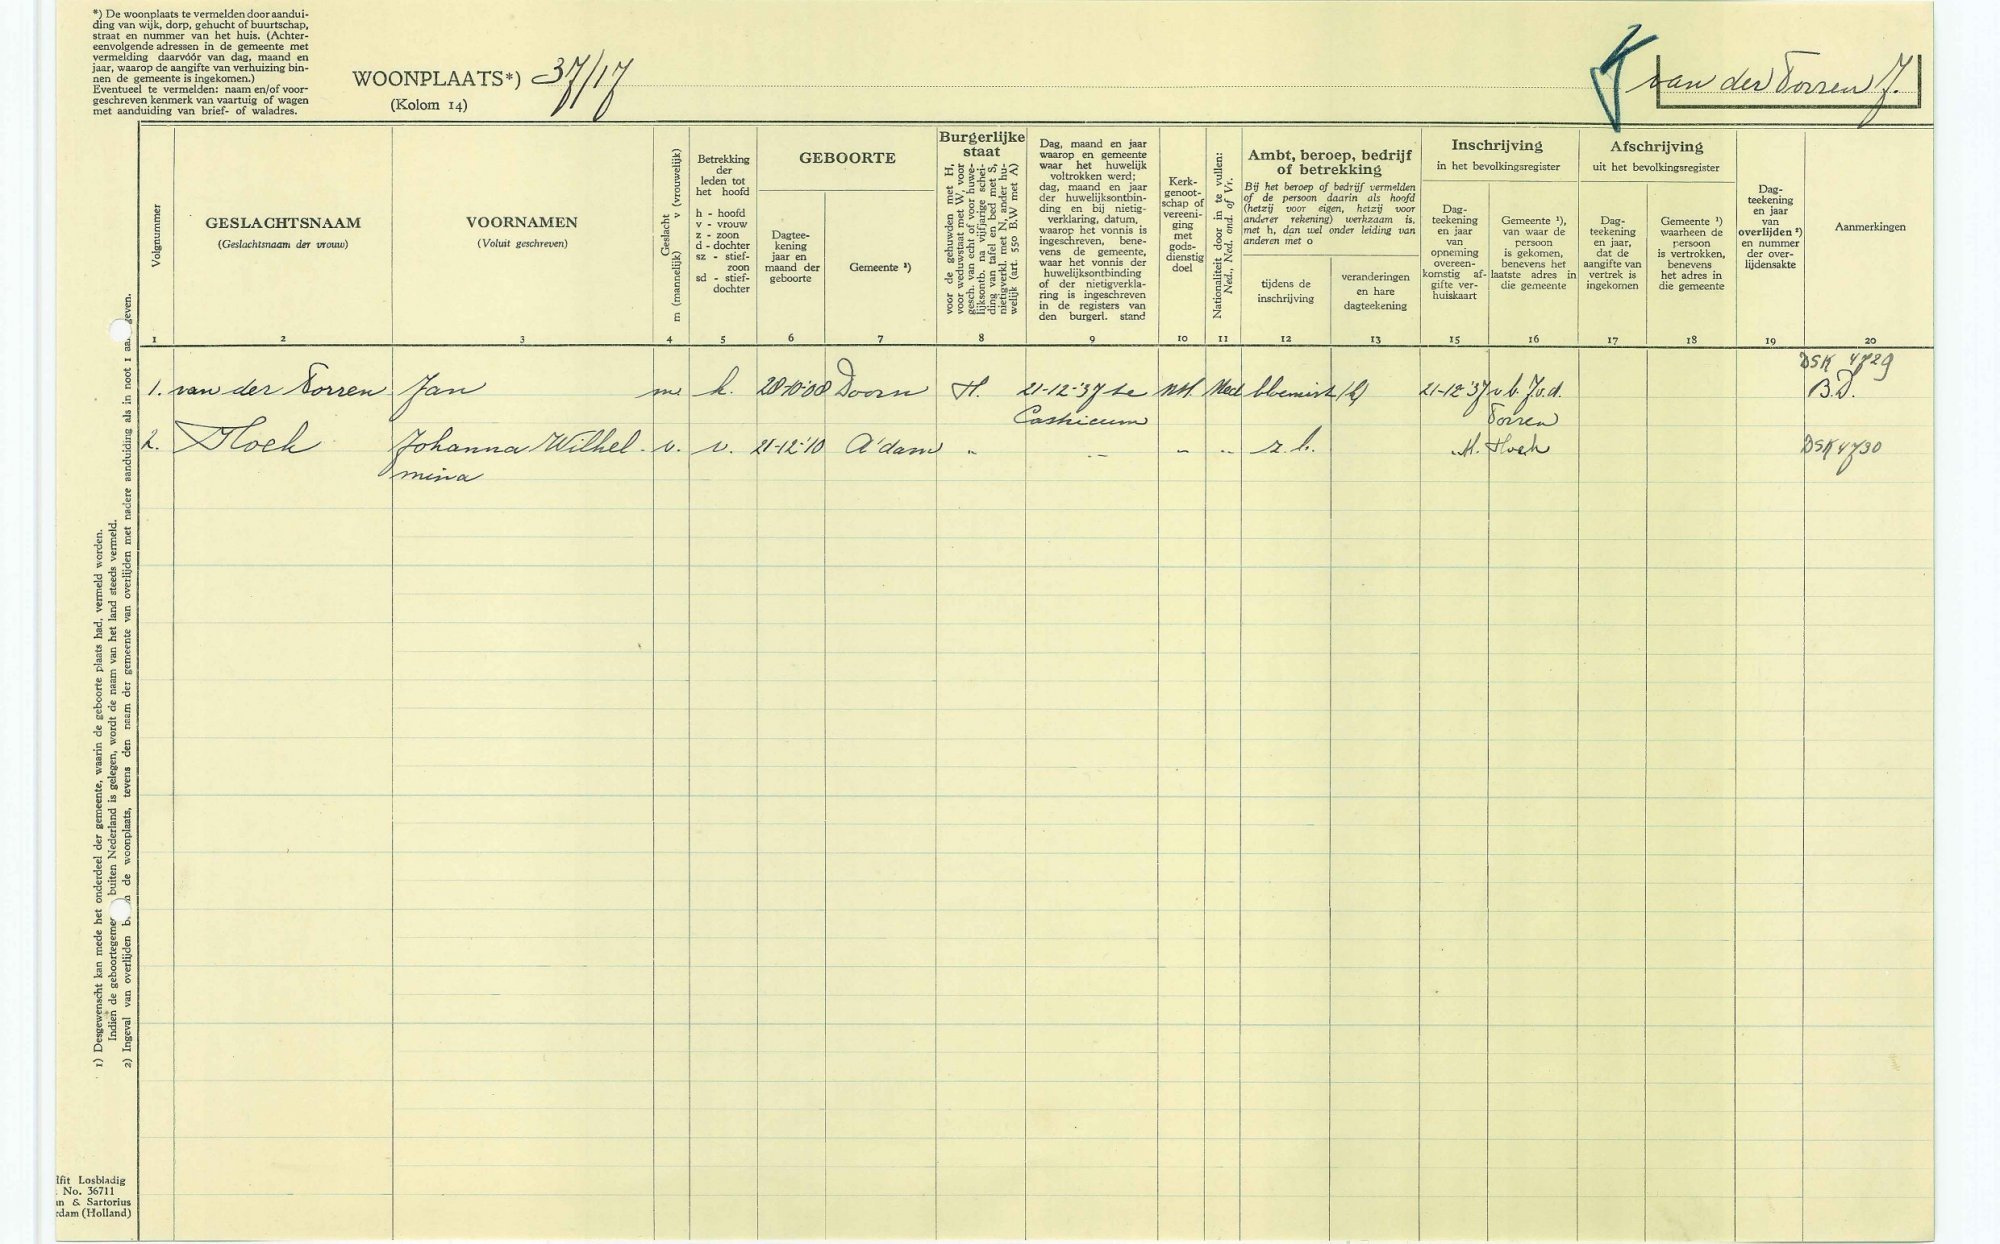 *) De woonplaats te vermelden door aandui-
ding van wijk, dorp, gehucht of buurtschap,
straat en nummer van het huis. (Achter-
eenvolgende adressen in de gemeente met
vermelding daarvóór van dag, maand en
jaar, waarop de aangifte van verhuizing bin-
nen de gemeente is ingekomen.)
Eventueel te vermelden: naam en/of voor-
geschreven kenmerk van vaartuig of wagen
met aanduiding van brief- of waladres.
WOONPLAATS*) 37/17
(Kolom 14)
van der Torren J.
Volgnummer
1
GESLACHTSNAAM
(Geslachtsnaam der vrouw)
2
VOORNAMEN
(Voluit geschreven)
3
Geslacht
m (mannelijk) v (vrouwelijk)
4
Betrekking
der
leden tot
het hoofd
h - hoofd
v - vrouw
z - zoon
d - dochter
sz - stief-
zoon
sd - stief-
dochter
5
GEBOORTE
Dagtee-
kening
jaar en
maand der
geboorte
6
Gemeente ¹)
7
Burgerlijke
staat
voor de gehuwden met H,
voor weduwstaat met W, voor
gesch. van echt of voor huwe-
lijksontb. na vijfjarige schei-
ding van tafel en bed met S,
nietigverkl. met N, ander hu-
welijk (art. 550 B.W met A)
8
Dag, maand en jaar
waarop en gemeente
waar het huwelijk
voltrokken werd;
dag, maand en jaar
der huwelijksontbin-
ding en bij nietig-
verklaring, datum,
waarop het vonnis is
ingeschreven, bene-
vens de gemeente,
waar het vonnis der
huwelijksontbinding
of der nietigverkla-
ring is ingeschreven
in de registers van
den burgerl. stand
9
Kerk-
genoot-
schap of
vereeni-
ging
met
gods-
dienstig
doel
10
Nationaliteit door in te vullen:
Ned., Ned. ond. of Vr.
11
Ambt, beroep, bedrijf
of betrekking
Bij het beroep of bedrijf vermelden
of de persoon daarin als hoofd
(hetzij voor eigen, hetzij voor
anderer rekening) werkzaam is,
met h, dan wel onder leiding van
anderen met o
tijdens de
inschrijving
12
veranderingen
en hare
dagteekening
13
Inschrijving
in het bevolkingsregister
Dag-
teekening
en jaar
van
opneming
overeen-
komstig af-
gifte ver-
huiskaart
15
Gemeente ¹),
van waar de
persoon
is gekomen,
benevens het
laatste adres in
die gemeente
16
Afschrijving
uit het bevolkingsregister
Dag-
teekening
en jaar,
dat de
aangifte van
vertrek is
ingekomen
17
Gemeente ¹)
waarheen de
persoon
is vertrokken,
benevens
het adres in
die gemeente
18
Dag-
teekening
en jaar
van
overlijden ²)
en nummer
der over-
lijdensakte
19
Aanmerkingen
20
DSK 4729
1. van der Torren Jan m. h. 28-10-'08 Doorn H. 21-12-'37 te N.H. Ned bloemist (h) 21-12-'37 v.b. J.v.d. B.D.
Castricum Torren
2. Hoek Johanna Wilhel- v. v. 21-12-'10 A'dam „ „ „ „ z.b. „ M. Hoek DSK 4730
mina
1) Desgewenscht kan mede het onderdeel der gemeente, waarin de geboorte plaats had, vermeld worden.
Indien de geboortegeme buiten Nederland is gelegen, wordt de naam van het land steeds vermeld.
2) Ingeval van overlijden b n de woonplaats, tevens den naam der gemeente van overlijden met nadere aanduiding als in noot 1 aa geven.
lfit Losbladig
No. 36711
n & Sartorius
rdam (Holland)